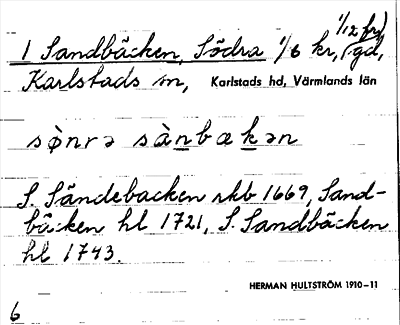 1/12 fr)
1 Sandbäcken, Södra 1/6 kr, (gd,
Karlstads sn, Karlstads hd, Värmlands län
sǿnrə sànbækən
S. Sändebacken skb 1669, Sand-
bäcken hl 1721, S. Sandbäcken
hl 1743.
HERMAN HULTSTRÖM 1910-11
6